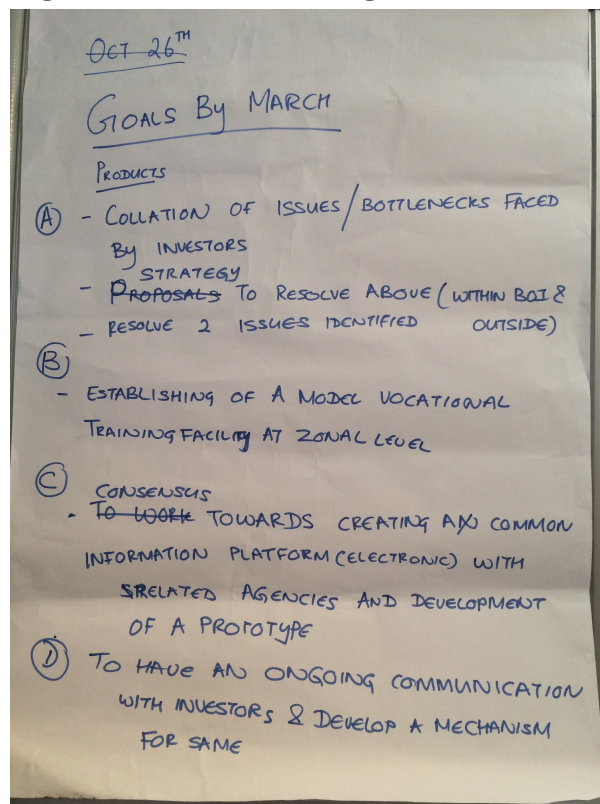 OCT 26TH
GOALS BY MARCH
PRODUCTS
(A) - COLLATION OF ISSUES/BOTTLENECKS FACED
BY INVESTORS
STRATEGY
- PROPOSALS TO RESOLVE ABOVE (WITHIN BOI &
- RESOLVE 2 ISSUES IDENTIFIED OUTSIDE)
(B)
- ESTABLISHING OF A MODEL VOCATIONAL
TRAINING FACILITY AT ZONAL LEVEL
(C) CONSENSUS
- TO WORK TOWARDS CREATING A COMMON
INFORMATION PLATFORM (ELECTRONIC) WITH
RELATED AGENCIES AND DEVELOPMENT
OF A PROTOTYPE
(D) TO HAVE AN ONGOING COMMUNICATION
WITH INVESTORS & DEVELOP A MECHANISM
FOR SAME